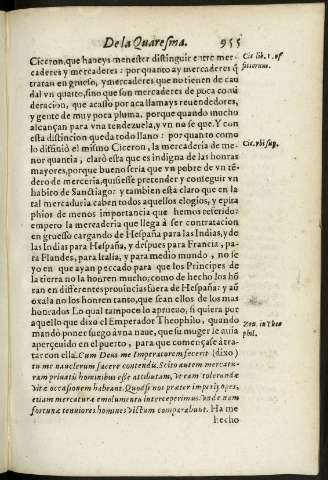 De la Quaresma. 955
Ciceron, que haueys menester distinguir entre mer-
caderes y mercaderes: por quanto ay mercaderes q̃
tratan en grueso, y mercaderes que no tienen de cau
dal vn quarto, sino que son mercaderes de poca consi
deracion, que acaso por aca llamays reuendedores,
y gente de muy poca pluma, porque quando mucho
alcançan para vna tendezuela, y vn no se que. Y con
esta distincion queda todo llano: por quanto como
lo distinió el mismo Ciceron, la mercaderia de me-
nor quantia, claro esta que es indigna de las honras
mayores, porque bueno seria que vn pobre de vn tē-
dero de merceria, quisiesse pretender y conseguir vn
habito de Sanctiago: y tambien esta claro que en la
tal mercaduria caben todos aquellos elogios, y epita
phios de menos importancia que hemos referido:
empero la mercaderia que llega à ser contratacion
en gruesso cargando de España para las Indias, y de
las Indias para España, y despues para Francia, pa-
ra Flandes, para Italia, y para medio mundo, no se
yo en que ayan peccado para que los Principes de
la tierra no la honren mucho, como de hecho los hō
ran en differentes prouincias fuera de Hespaña: y aũ
oxala no los honren tanto, que sean ellos de los mas
honrados. Lo qual tampoco lo aprueuo, si quiera por
aquello que dixo el Emperador Theophilo, quando
mandó poner fuego à vna naue, que su muger le auia
aperceuido en el puerto, para que començasse à tra-
tar con ella. Cum Deus me Imperatorem fecerit (dixo)
tu me nauclerum facere contendis. Scito autem mercatu-
ram priuatis hominibus esse attributam, vt eam tolerandæ
vitæ occasionem habeant. Quod si nos præter imperij opes,
etiam mercaturæ emolumenta interceperimus: vnde nam
fortunæ tenuiores homines victum comparabunt. Ha me
hecho
Cic. lib. 1. of
ficiorum.
Cic. vbi sup.
Zon. in Theo
phil.